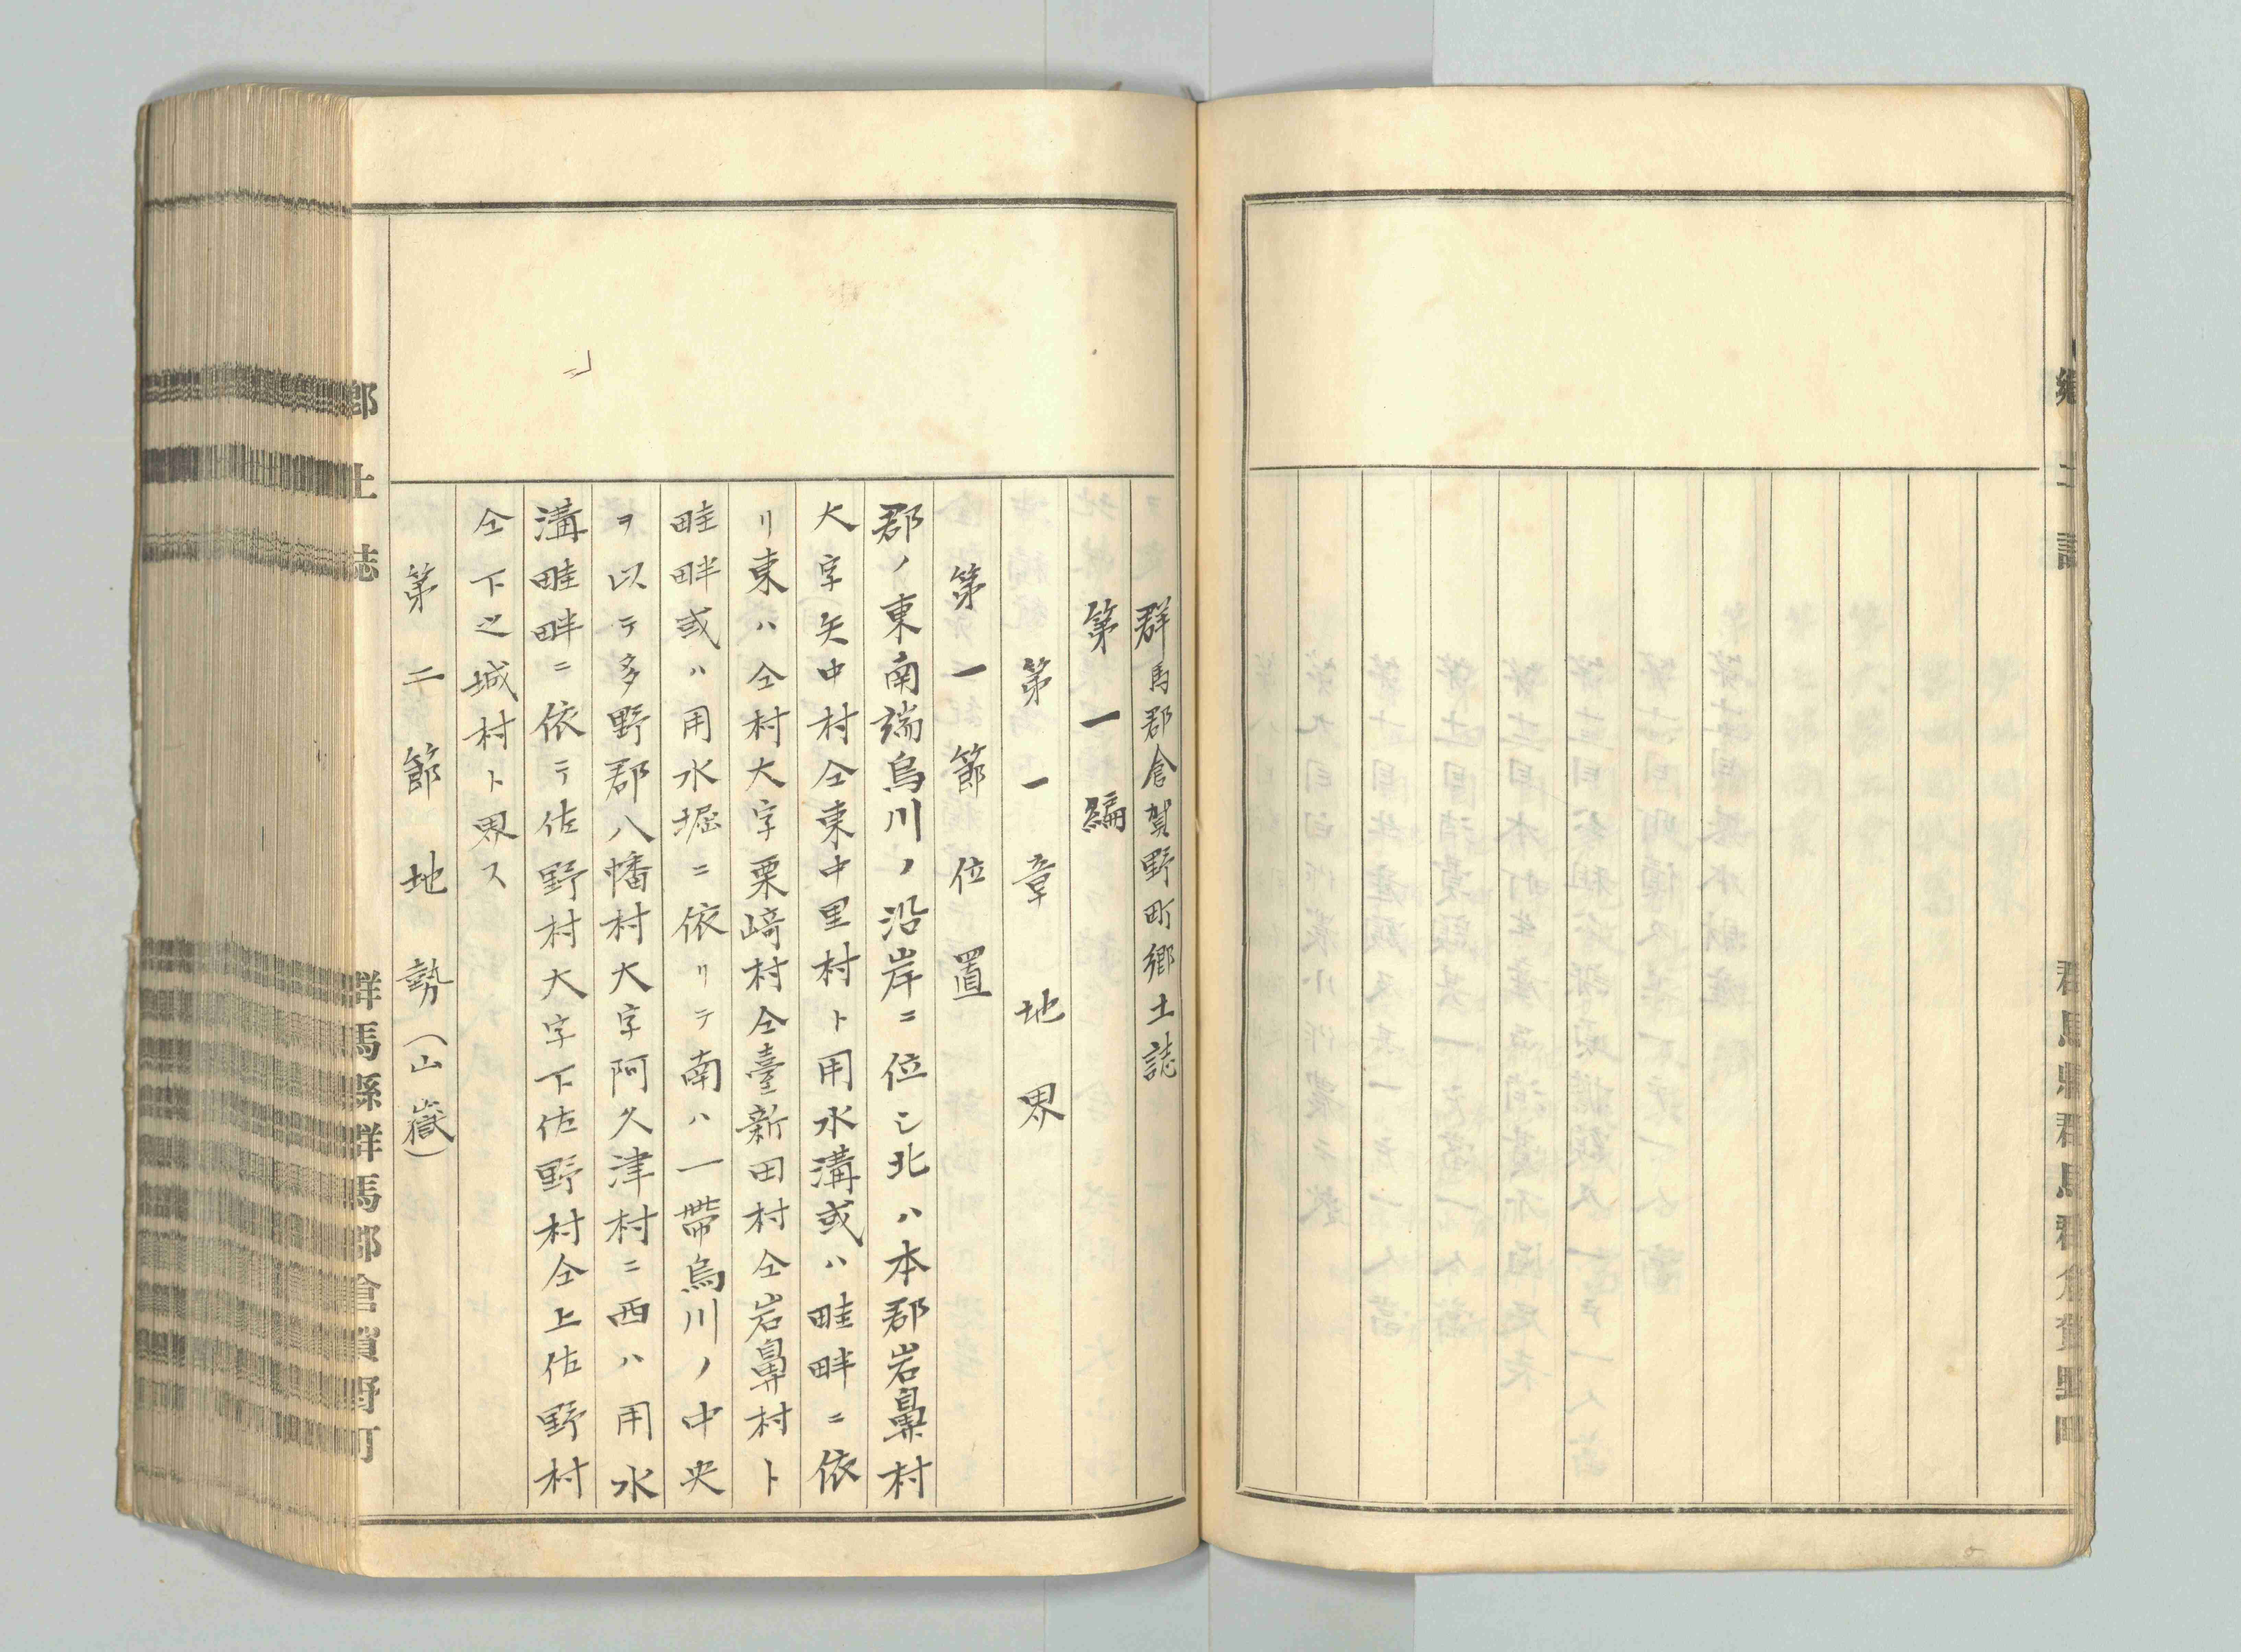 群馬郡倉賀野町郷土誌
第一編
第一章 地界
第一節 位置
郡ノ東南端烏川ノ沿岸ニ位シ北ハ本郡岩鼻村
大字矢中村仝東中里村ト用水溝或ハ畦畔ニ依
リ東ハ仝村大字栗崎村仝臺新田村仝岩鼻村ト
畦畔或ハ用水堀ニ依リテ南ハ一帶烏川ノ中央
ヲ以テ多野郡八幡村大字阿久津村ニ西ハ用水
溝畦畔ニ依テ佐野村大字下佐野村仝上佐野村
仝下之城村ト界ス
第二節 地勢(山嶽)
郷土誌
群馬縣群馬郡倉賀野町